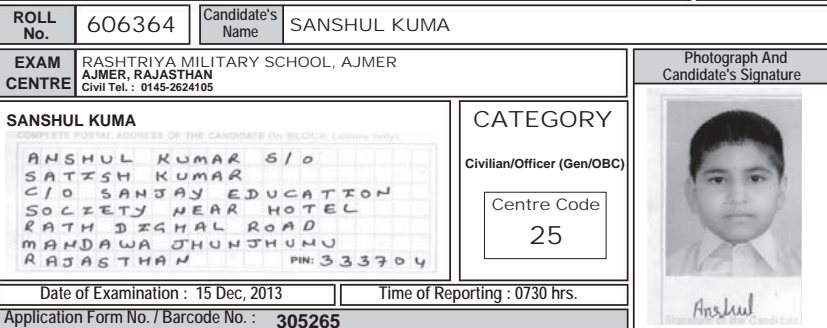 ROLL No. 606364 Candidate's Name SANSHUL KUMA
EXAM CENTRE RASHTRIYA MILITARY SCHOOL, AJMER
AJMER, RAJASTHAN
Civil Tel. : 0145-2624105
Photograph And
Candidate's Signature
SANSHUL KUMA
COMPLETE POSTAL ADDRESS OF THE CANDIDATE (In BLOCK Letters only)
ANSHUL KUMAR S/O
SATISH KUMAR
C/O SANJAY EDUCATION
SOCIETY NEAR HOTEL
RATH DIGHAL ROAD
MANDAWA JHUNJHUNU
RAJASTHAN PIN: 333704
CATEGORY
Civilian/Officer (Gen/OBC)
Centre Code
25
Anshul
Signature of the Candidate
Date of Examination : 15 Dec, 2013 Time of Reporting : 0730 hrs.
Application Form No. / Barcode No. : 305265